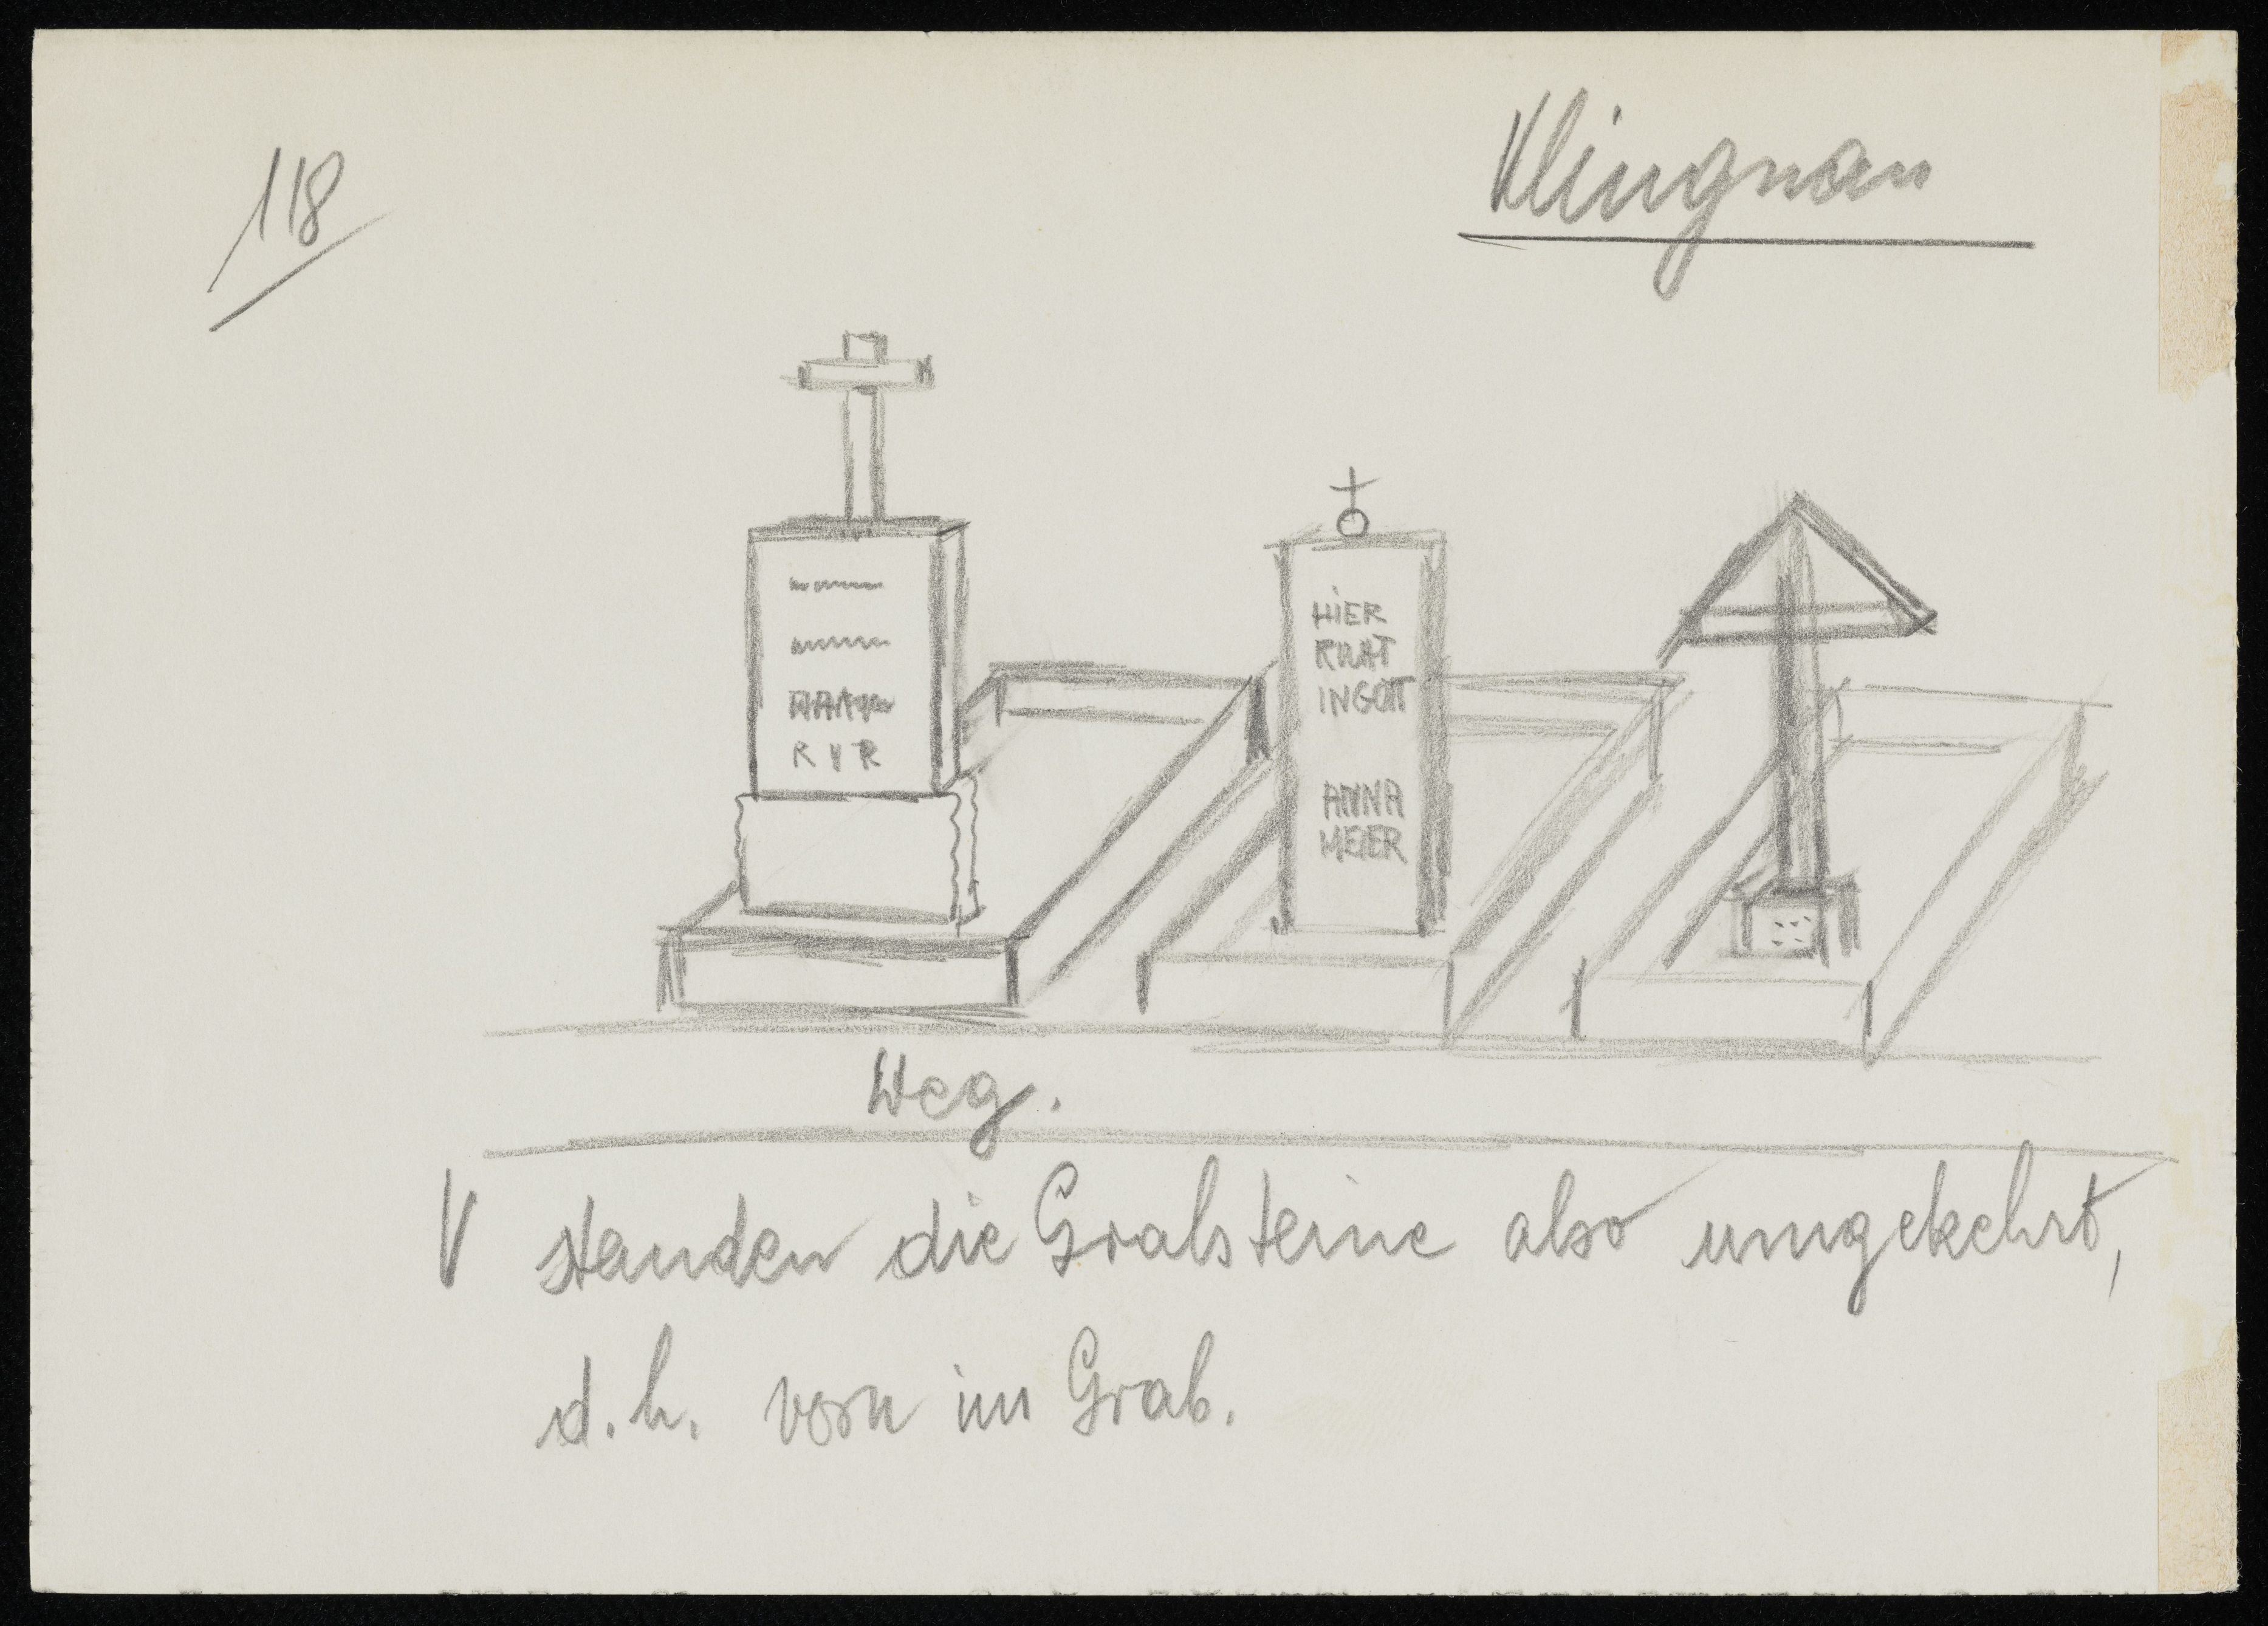 118
Klingnau
R I P
HIER
RUHT
IN GOTT
ANNA
MEIER
Weg.
V standen die Grabsteine also umgekehrt,
d.h. vorn im Grab.